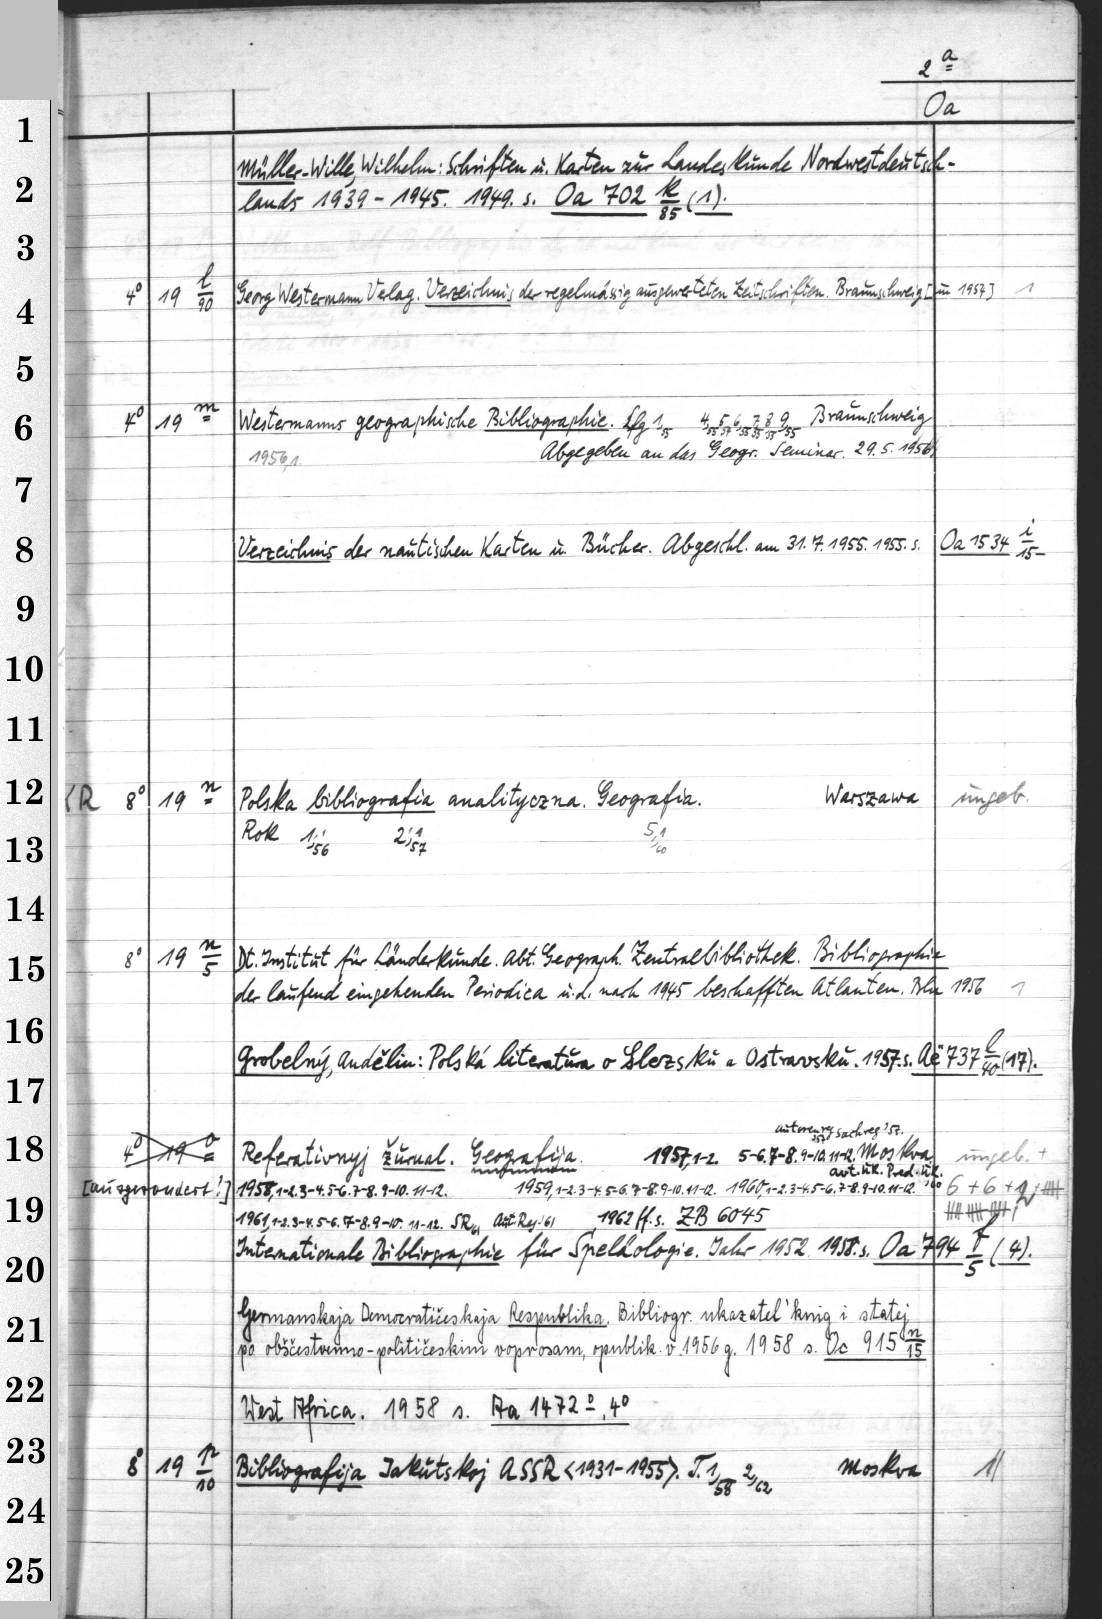 2 a
Oa
1
Müller-Wille, Wilhelm: Schriften u. Karten zur Landeskunde Nordwestdeutsch-
2
lands 1939 - 1945. 1949. s. Oa 702 k/85 (1).
3
4° 19 l/90 Georg Westermann Verlag. Verzeichnis der regelmässig ausgewerteten Zeitschriften. Braunschweig [um 1957] 1
4
5
4° 19 m Westermanns geographische Bibliographie. Lfg 1/55 4/55 5/55 6/55 7/55 8/55 9/55 Braunschweig
6
1956,1. Abgegeben an das Geogr. Seminar. 29.5.1956
7
8 Verzeichnis der nautischen Karten u. Bücher. Abgeschl. am 31.7.1955. 1955. s. Oa 1534 i/15
9
10
11
12 8° 19 n Polska bibliografia analityczna. Geografia. Warszawa ungeb.
Rok 1,1/56 2,1/57 5,1/60
13
14
8° 19 n/5 Dt. Institut für Länderkunde. Abt. Geograph. Zentralbibliothek. Bibliographie
15
der laufend eingehenden Periodica u. d. nach 1945 beschafften Atlanten. Bln 1956 1
16
Grobelný, Andělín: Polská literatura o Slezsku a Ostravsku. 1957. s. Aë 737 l/40 (17).
17
autorenreg. 1957 Sachreg '57.
18 4° 19 o Referativnyj Žurnal. Geografija. 1957,1-2. 5-6.7-8.9-10.11-12. Moskva ungeb. +
avt. uk. Pred. uk. '60
[ausgesondert!] 1958,1-2.3-4.5-6.7-8.9-10.11-12. 1959,1-2.3-4.5-6.7-8.9-10.11-12. 1960,1-2.3-4.5-6.7-8.9-10.11-12. 6 + 6 +
19
1961,1-2.3-4.5-6.7-8.9-10. 11-12. SR/61 Aut. Reg. '61 1962 ff. s. ZB 6045
Internationale Bibliographie für Speläologie. Jahr 1952. 1958. s. Oa 794 f/5 (4).
20
Germanskaja Democratičeskaja Respublika. Bibliogr. ukazatel' knig i statej
21
po obščestvenno-političeskim voprosam, opublik. v 1956 g. 1958 s. Oc 915 n/15
22 West Africa. 1958 s. Aa 1472 o, 4°
23
8° 19 p/10 Bibliografija Jakutskoj ASSR <1931-1955>. T. 1/58 2/62 Moskva 1/
24
25